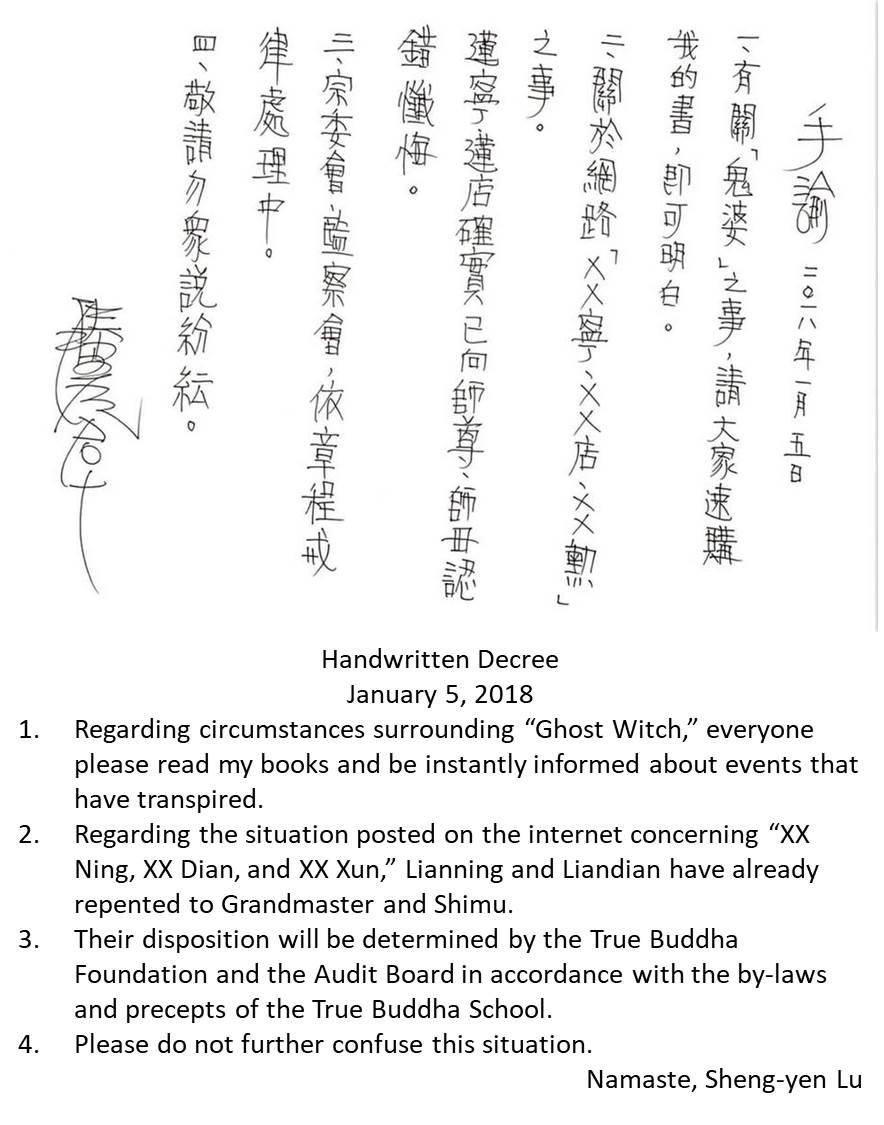 手諭 二〇一八年一月五日
一、有關「鬼婆」之事，請大家速購
我的書，即可明白。
二、關於網路「XX寧、XX店、XX勳」
之事。
蓮寧、蓮店確實已向師尊、師母認
錯懺悔。
三、宗委會、監察會，依章程戒
律處理中。
四、敬請勿眾説紛紜。
Handwritten Decree
January 5, 2018
1. Regarding circumstances surrounding “Ghost Witch,” everyone
please read my books and be instantly informed about events that
have transpired.
2. Regarding the situation posted on the internet concerning “XX
Ning, XX Dian, and XX Xun,” Lianning and Liandian have already
repented to Grandmaster and Shimu.
3. Their disposition will be determined by the True Buddha
Foundation and the Audit Board in accordance with the by-laws
and precepts of the True Buddha School.
4. Please do not further confuse this situation.
Namaste, Sheng-yen Lu